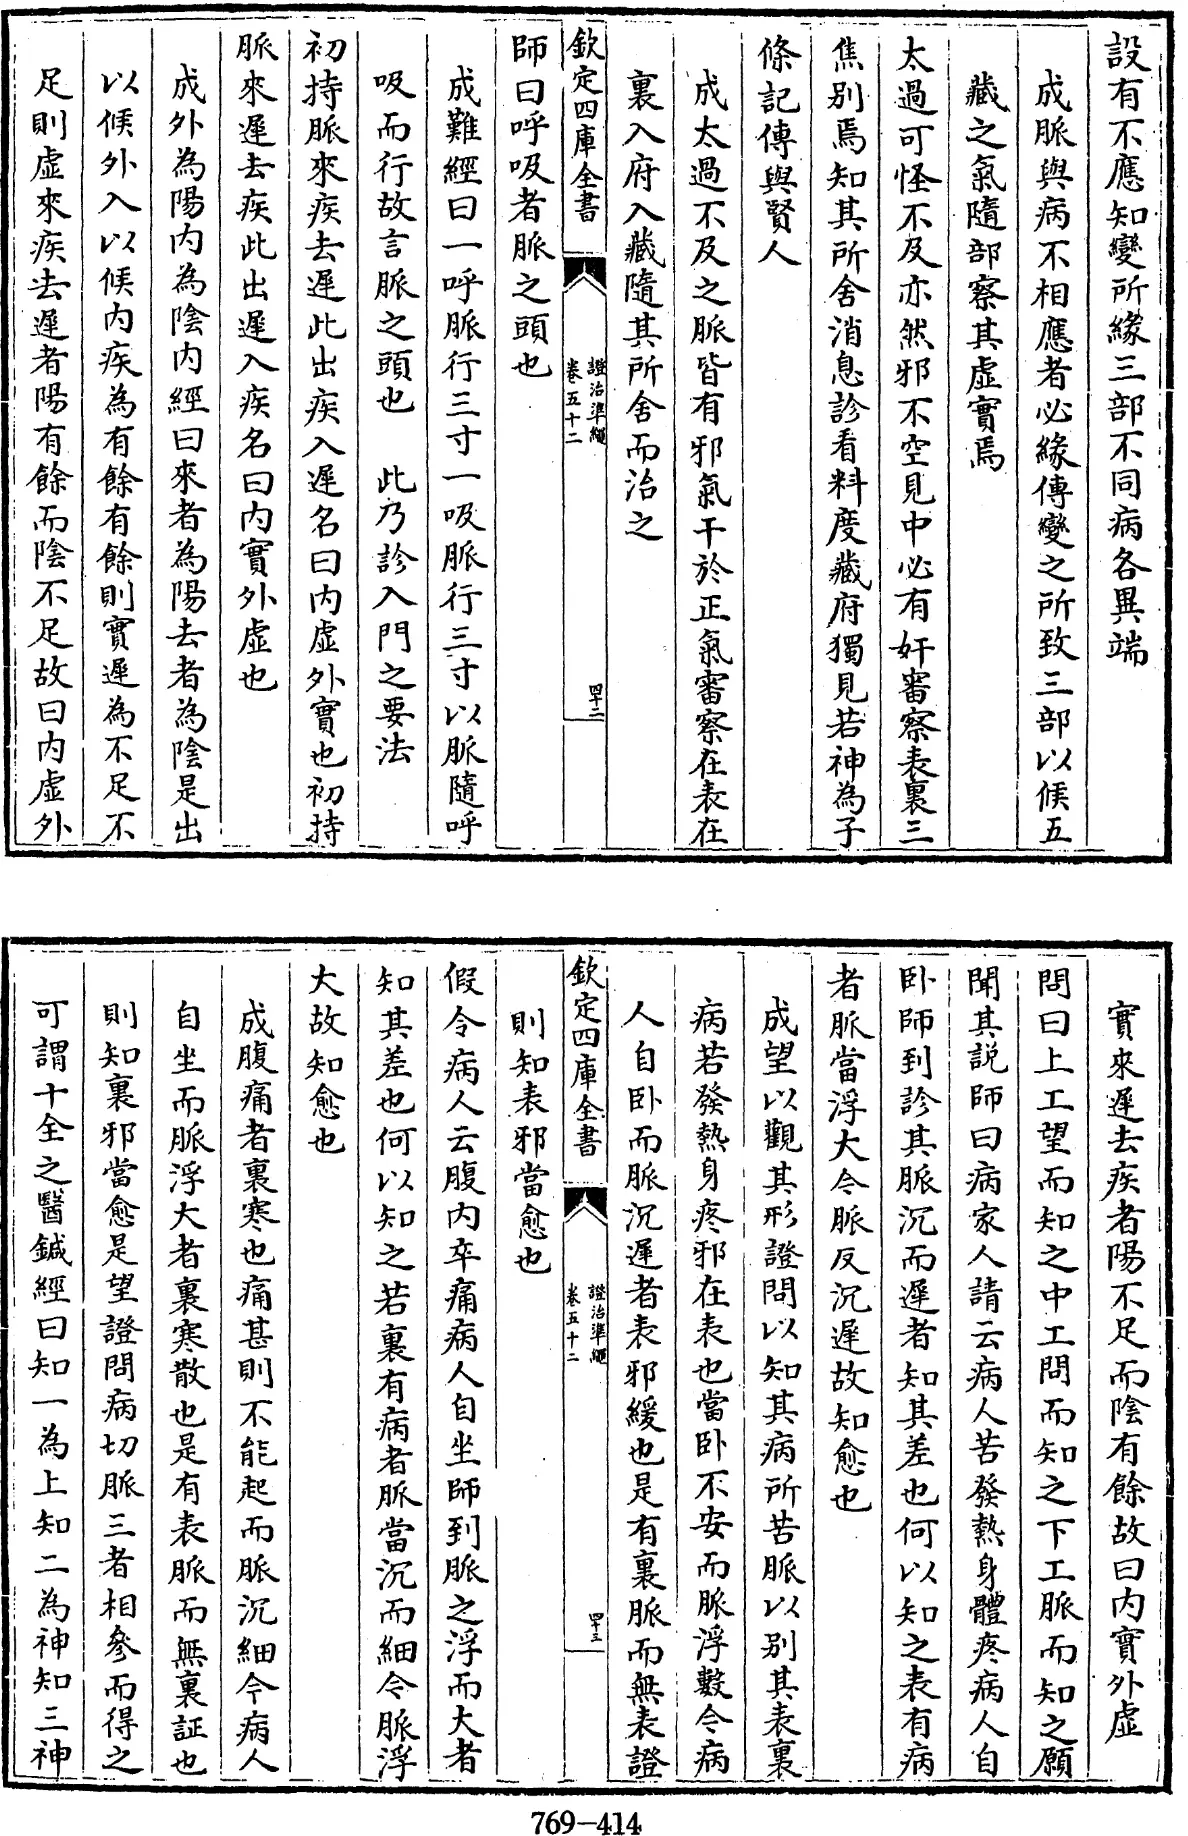 設有不應知變所緣三部不同病各異端
成脈與病不相應者必緣傳變之所致三部以候五
藏之氣隨部察其虛實焉
太過可怪不及亦然邪不空見中必有奸審察表裏三
焦別焉知其所舍消息診看料度藏府獨見若神為子
條記傳與賢人
成太過不及之脈皆有邪氣干於正氣審察在表在
裏入府入藏隨其所舍而治之
欽定四庫全書
證治準繩
卷五十二
四十二
師曰呼吸者脈之頭也
成難經曰一呼脈行三寸一吸脈行三寸以脈隨呼
吸而行故言脈之頭也 此乃診入門之要法
初持脈來疾去遲此出疾入遲名曰內虛外實也初持
脈來遲去疾此出遲入疾名曰內實外虛也
成外為陽內為陰內經曰來者為陽去者為陰是出
以候外入以候內疾為有餘有餘則實遲為不足不
足則虛來疾去遲者陽有餘而陰不足故曰內虛外
實來遲去疾者陽不足而陰有餘故曰內實外虛
問曰上工望而知之中工問而知之下工脈而知之願
聞其説師曰病家人請云病人苦發熱身體疼病人自
卧師到診其脈沉而遲者知其差也何以知之表有病
者脈當浮大今脈反沉遲故知愈也
成望以觀其形證問以知其病所苦脈以別其表裏
病若發熱身疼邪在表也當卧不安而脈浮數今病
人自卧而脈沉遲者表邪緩也是有裏脈而無表證
欽定四庫全書
證治準繩
卷五十二
四十三
則知表邪當愈也
假令病人云腹內卒痛病人自坐師到脈之浮而大者
知其差也何以知之若裏有病者脈當沉而細今脈浮
大故知愈也
成腹痛者裏寒也痛甚則不能起而脈沉細今病人
自坐而脈浮大者裏寒散也是有表脈而無裏証也
則知裏邪當愈是望證問病切脈三者相參而得之
可謂十全之醫鍼經曰知一為上知二為神知三神
769-414